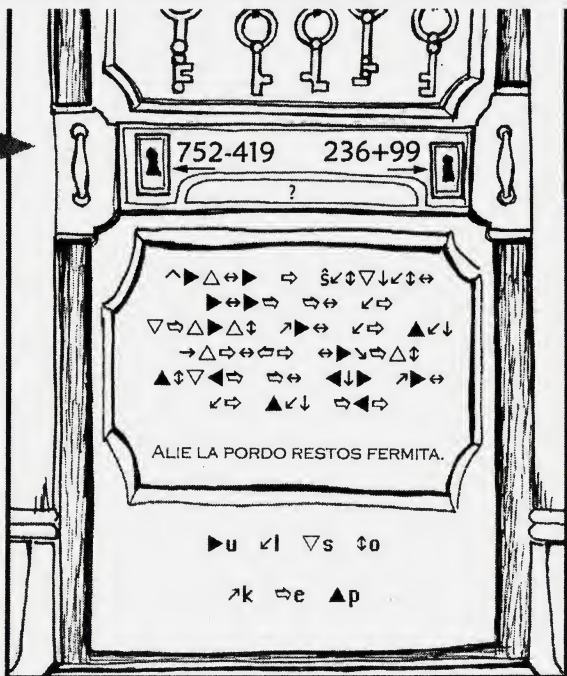 752-419 236+99
?
^▶△⇔▶ ⇨ ŝ↙⇕▽↓↙⇕⇔
▶⇔▶⇨ ⇨⇔ ↙⇨
▽⇨△▶△⇕ ↗▶⇔ ↙⇨ ▲↙↓
→△⇨⇔⇦⇨ ⇔▶↘⇨△⇕
▲⇕▽◀⇨ ⇨⇔ ◀↓▶ ↗▶⇔
↙⇨ ▲↙↓ ⇨◀⇨
ALIE LA PORDO RESTOS FERMITA.
▶u ↙l ▽s ⇕o
↗k ⇨e ▲p